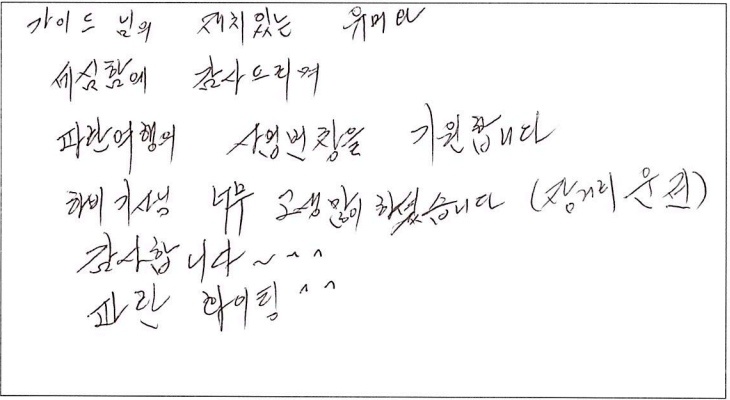 가이드 님의 재치있는 유머와
세심함에 감사드리며
파란여행의 사업번창을 기원합니다
하비 기사님 너무 고생많이 하셨습니다 (장거리 운전)
감사합니다~^^
파란 화이팅^^